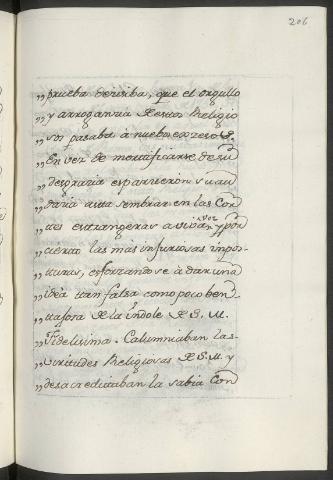 206
„prueba decisiba, que el orgullo
„y arroganzia de estos Religio
„sos pasaba à nuebo exzeso S.
„En vez de mortificarse de su
„desgrazia esparcieron su au
„dazia asta sembrar en las Cor
„tes extrangeras a viva voz y por
„escrito las mas injuriosas impos
„turas, esforzandose à dar una
„idèa tan falsa como poco ben
„tajosa de la Yndole de S. M.
„Fidelisima. Calumniaban las
„Virtudes Religiosas de S. M. y
„desacreditaban la sabia Con